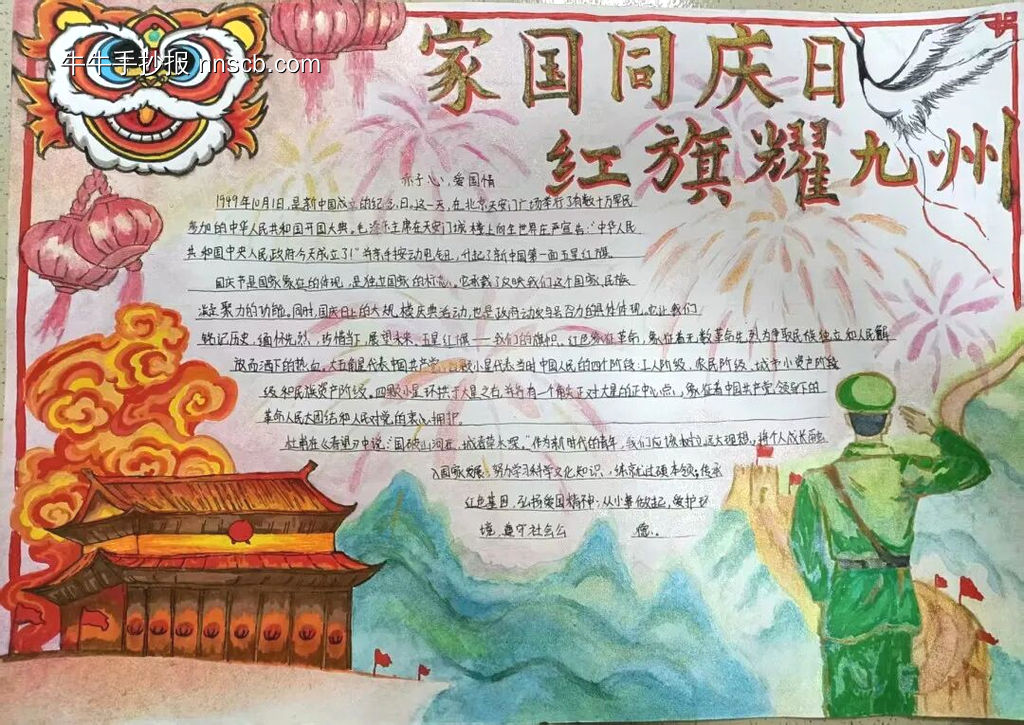 牛牛手抄报 nnscb.com
家国同庆日
红旗耀九州
赤子心,爱国情
1949年10月1日,是新中国成立的纪念日,这一天,在北京天安门广场举行了有数十万军民
参加的中华人民共和国开国大典。毛泽东主席在天安门城楼上向全世界庄严宣告:"中华人民
共和国中央人民政府今天成立了!"并亲手按动电钮,升起了新中国第一面五星红旗。
国庆节是国家象征的体现,是独立国家的标志。它承载了反映我们这个国家、民族
凝聚力的功能。同时,国庆日上的大规模庆典活动,也是政府动员与号召力的具体体现。它让我们
铭记历史,缅怀先烈,珍惜当下,展望未来。五星红旗——我们的旗帜。红色象征革命,象征着无数革命先烈为争取民族独立和人民解
放而洒下的热血。大五角星代表中国共产党,四颗小星代表当时中国人民的四个阶级:工人阶级、农民阶级、城市小资产阶段
级和民族资产阶级。四颗小星环拱于大星之右,并各有一个角尖正对大星的正中心点,象征着中国共产党领导下的
革命人民大团结和人民对党的衷心拥护。
杜甫在《春望》中说:"国破山河在,城春草木深。"作为新时代的青年,我们应该树立远大理想,将个人成长融
入国家发展;努力学习科学文化知识,练就过硬本领;传承
红色基因,弘扬爱国精神;从小事做起,爱护环
境,遵守社会公德。